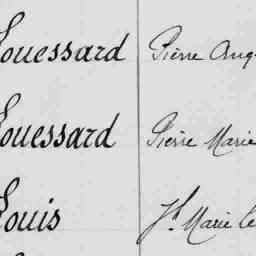 Louessard Pierre Aug
Louessard Pierre Marie
Louis Jh Marie Le